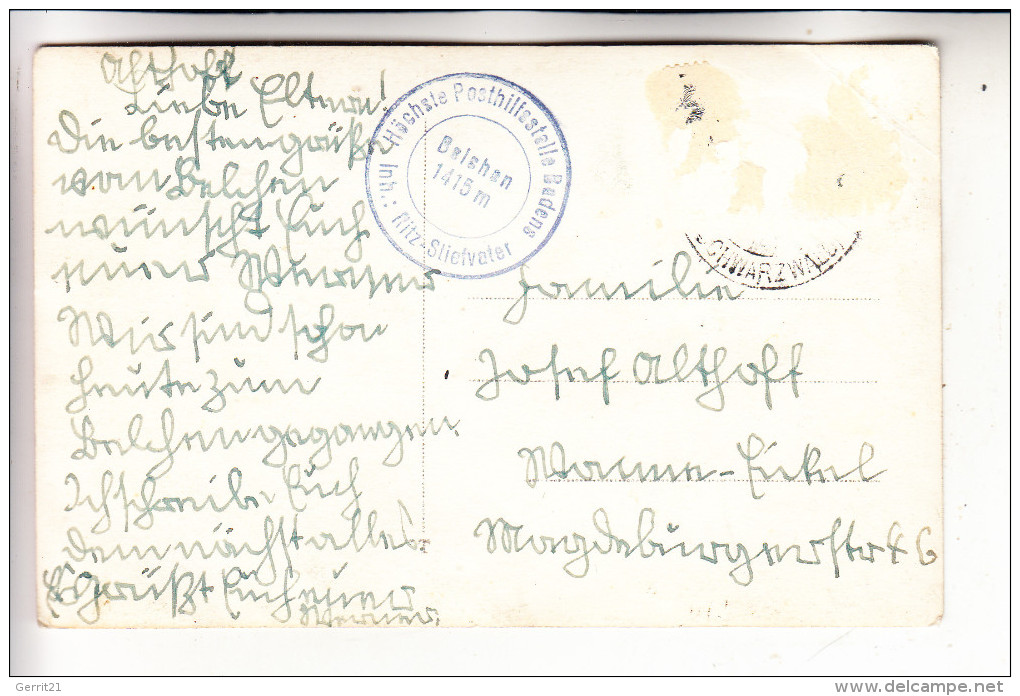 Althoff
Liebe Eltern!
Die besten Grüße
vom Belchen
wünscht Euch
euer Werner
Wir sind schon
heute zum
Belchen gegangen.
Ich schreibe Euch
demnächst alles.
Es grüßt Euch euer
Werner.
Höchste Posthilfsstelle Badens
Inh.: Ritz-Stiefvater
Belchen
1415 m
SCHWARZWALD
Familie
Josef Althoff
Wanne-Eickel
Magdeburgerstr 6
Gerrit21
delcampe.net